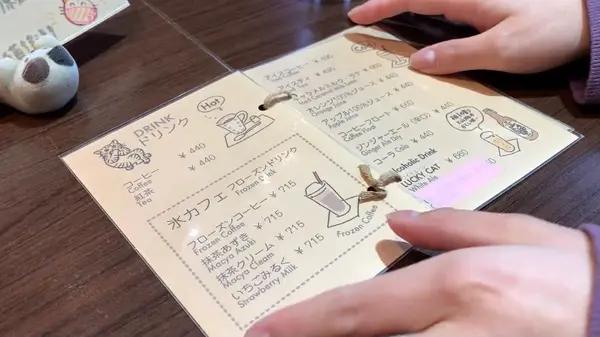 DRINK
ドリンク
Hot
コーヒー ¥440
Coffee
紅茶 ¥440
Tea
氷カフェ フローズンドリンク
Frozen Drink
フローズンコーヒー ¥715
Frozen Coffee
抹茶あずき ¥715
Macya Azuki
抹茶クリーム ¥715
Macya Cleam
いちごみるく ¥715
Strawberry Milk
Frozen Coffee
アイスコーヒー
アイスティ
オレンジ100%ジュース ¥440
Orange Juice
アップル100%ジュース ¥440
Apple Juice
コーヒーフロート ¥660
Coffee Float
ジンジャーエール(辛口)
Ginger Ale Dry
コーラ Cola
Alcoholic Drink
LUCKY CAT ¥680
White Ale